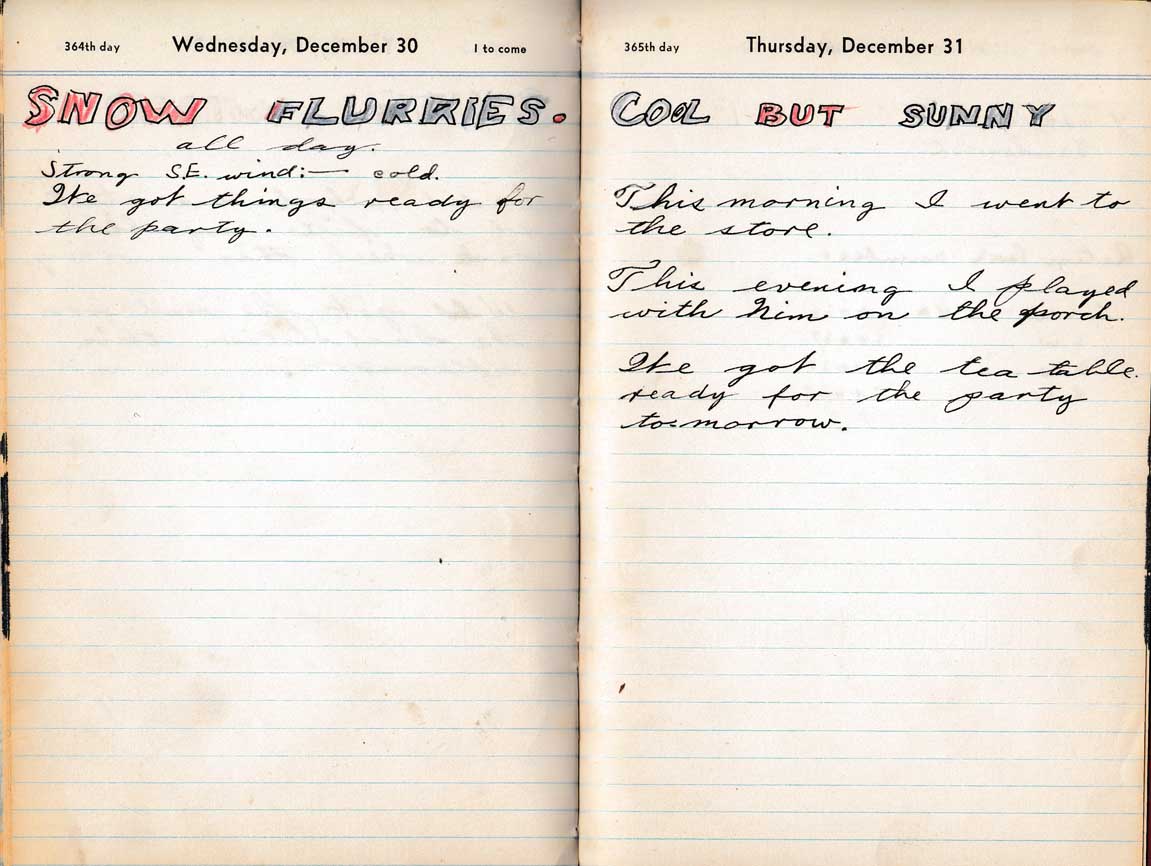 364th day Wednesday, December 30 1 to come
SNOW FLURRIES.
all day.
Strong S.E. wind:— cold.
We got things ready for
the party.
365th day Thursday, December 31
COOL BUT SUNNY
This morning I went to
the store.
This evening I played
with Nim on the porch.
We got the tea table.
ready for the party
tomorrow.